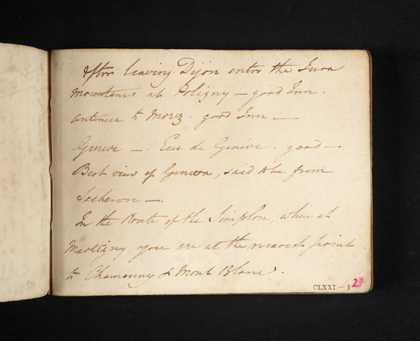 After leaving Dijon enter the Jura
Mountains at Poligny – good Inn.
continue to Morez. good Inn –
Geneve – Ecu de Geneve. good –
Best view of Geneva, said to be from
Secheron –
In the Route of the Simplon, when at
Martigny you are at the nearest point
to Chamouny & Mont Blanc.
CLXXI –
29